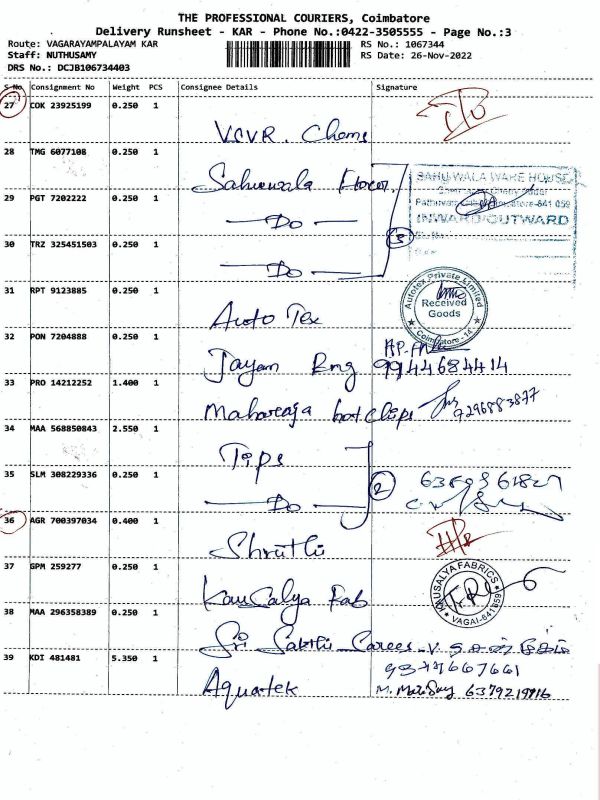 THE PROFESSIONAL COURIERS, Coimbatore
Delivery Runsheet - KAR - Phone No.:0422-3505555 - Page No.:3
Route: VAGARAYAMPALAYAM KAR
RS No.: 1067344
Staff: NUTHUSAMY
RS Date: 26-Nov-2022
DRS No.: DCJB106734403
S No. Consignment No Weight PCS Consignee Details Signature
27 COK 23925199 0.250 1
VSVR. Chems
28 TMG 6077108 0.250 1
Sahuwala
SAHU WALA WARE HOUSE
29 PGT 7202222 0.250 1
Do
INWARD/OUTWARD
30 TRZ 325451503 0.250 1
Do
3
31 RPT 9123885 0.250 1
Auto Tex
Autotex Private Limited
Received
Goods
Coimbatore - 14
32 PON 7204888 0.250 1
Jayam Eng 9944684414
33 PRO 14212252 1.400 1
Maharaja hot chips 7296883877
34 MAA 568850843 2.550 1
Tips
35 SLM 308229336 0.250 1
Do
2
36 AGR 700397034 0.400 1
Shruthi
37 GPM 259277 0.250 1
Kausalya Fab
KAUSALYA FABRICS
VAGAI-641659
38 MAA 296358389 0.250 1
Sri Sakthi Careers
39 KDI 481481 5.350 1
Aquatek